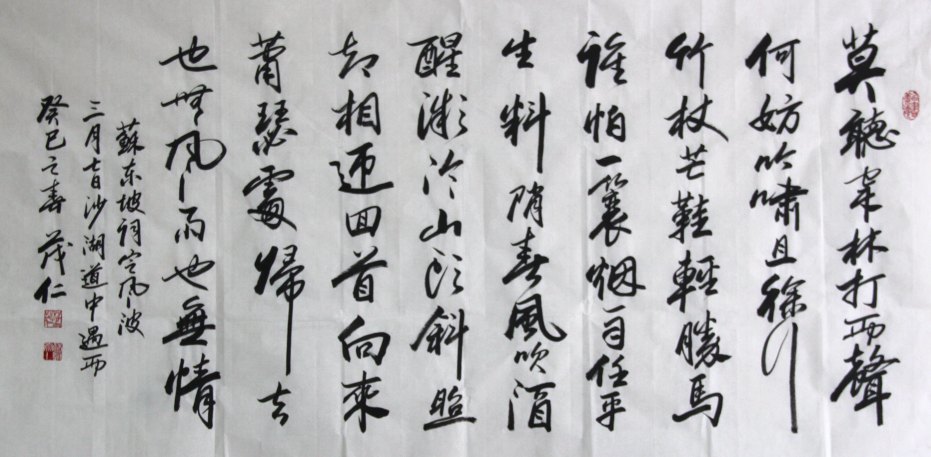 莫聽穿林打雨聲
何妨吟嘯且徐行
竹杖芒鞋輕勝馬
誰怕一蓑烟雨任平
生料峭春風吹酒
醒微冷山頭斜照
却相迎回首向來
蕭瑟處歸去
也無風雨也無情
蘇東坡詞定風波
三月七日沙湖道中遇雨
癸巳之春 茂仁